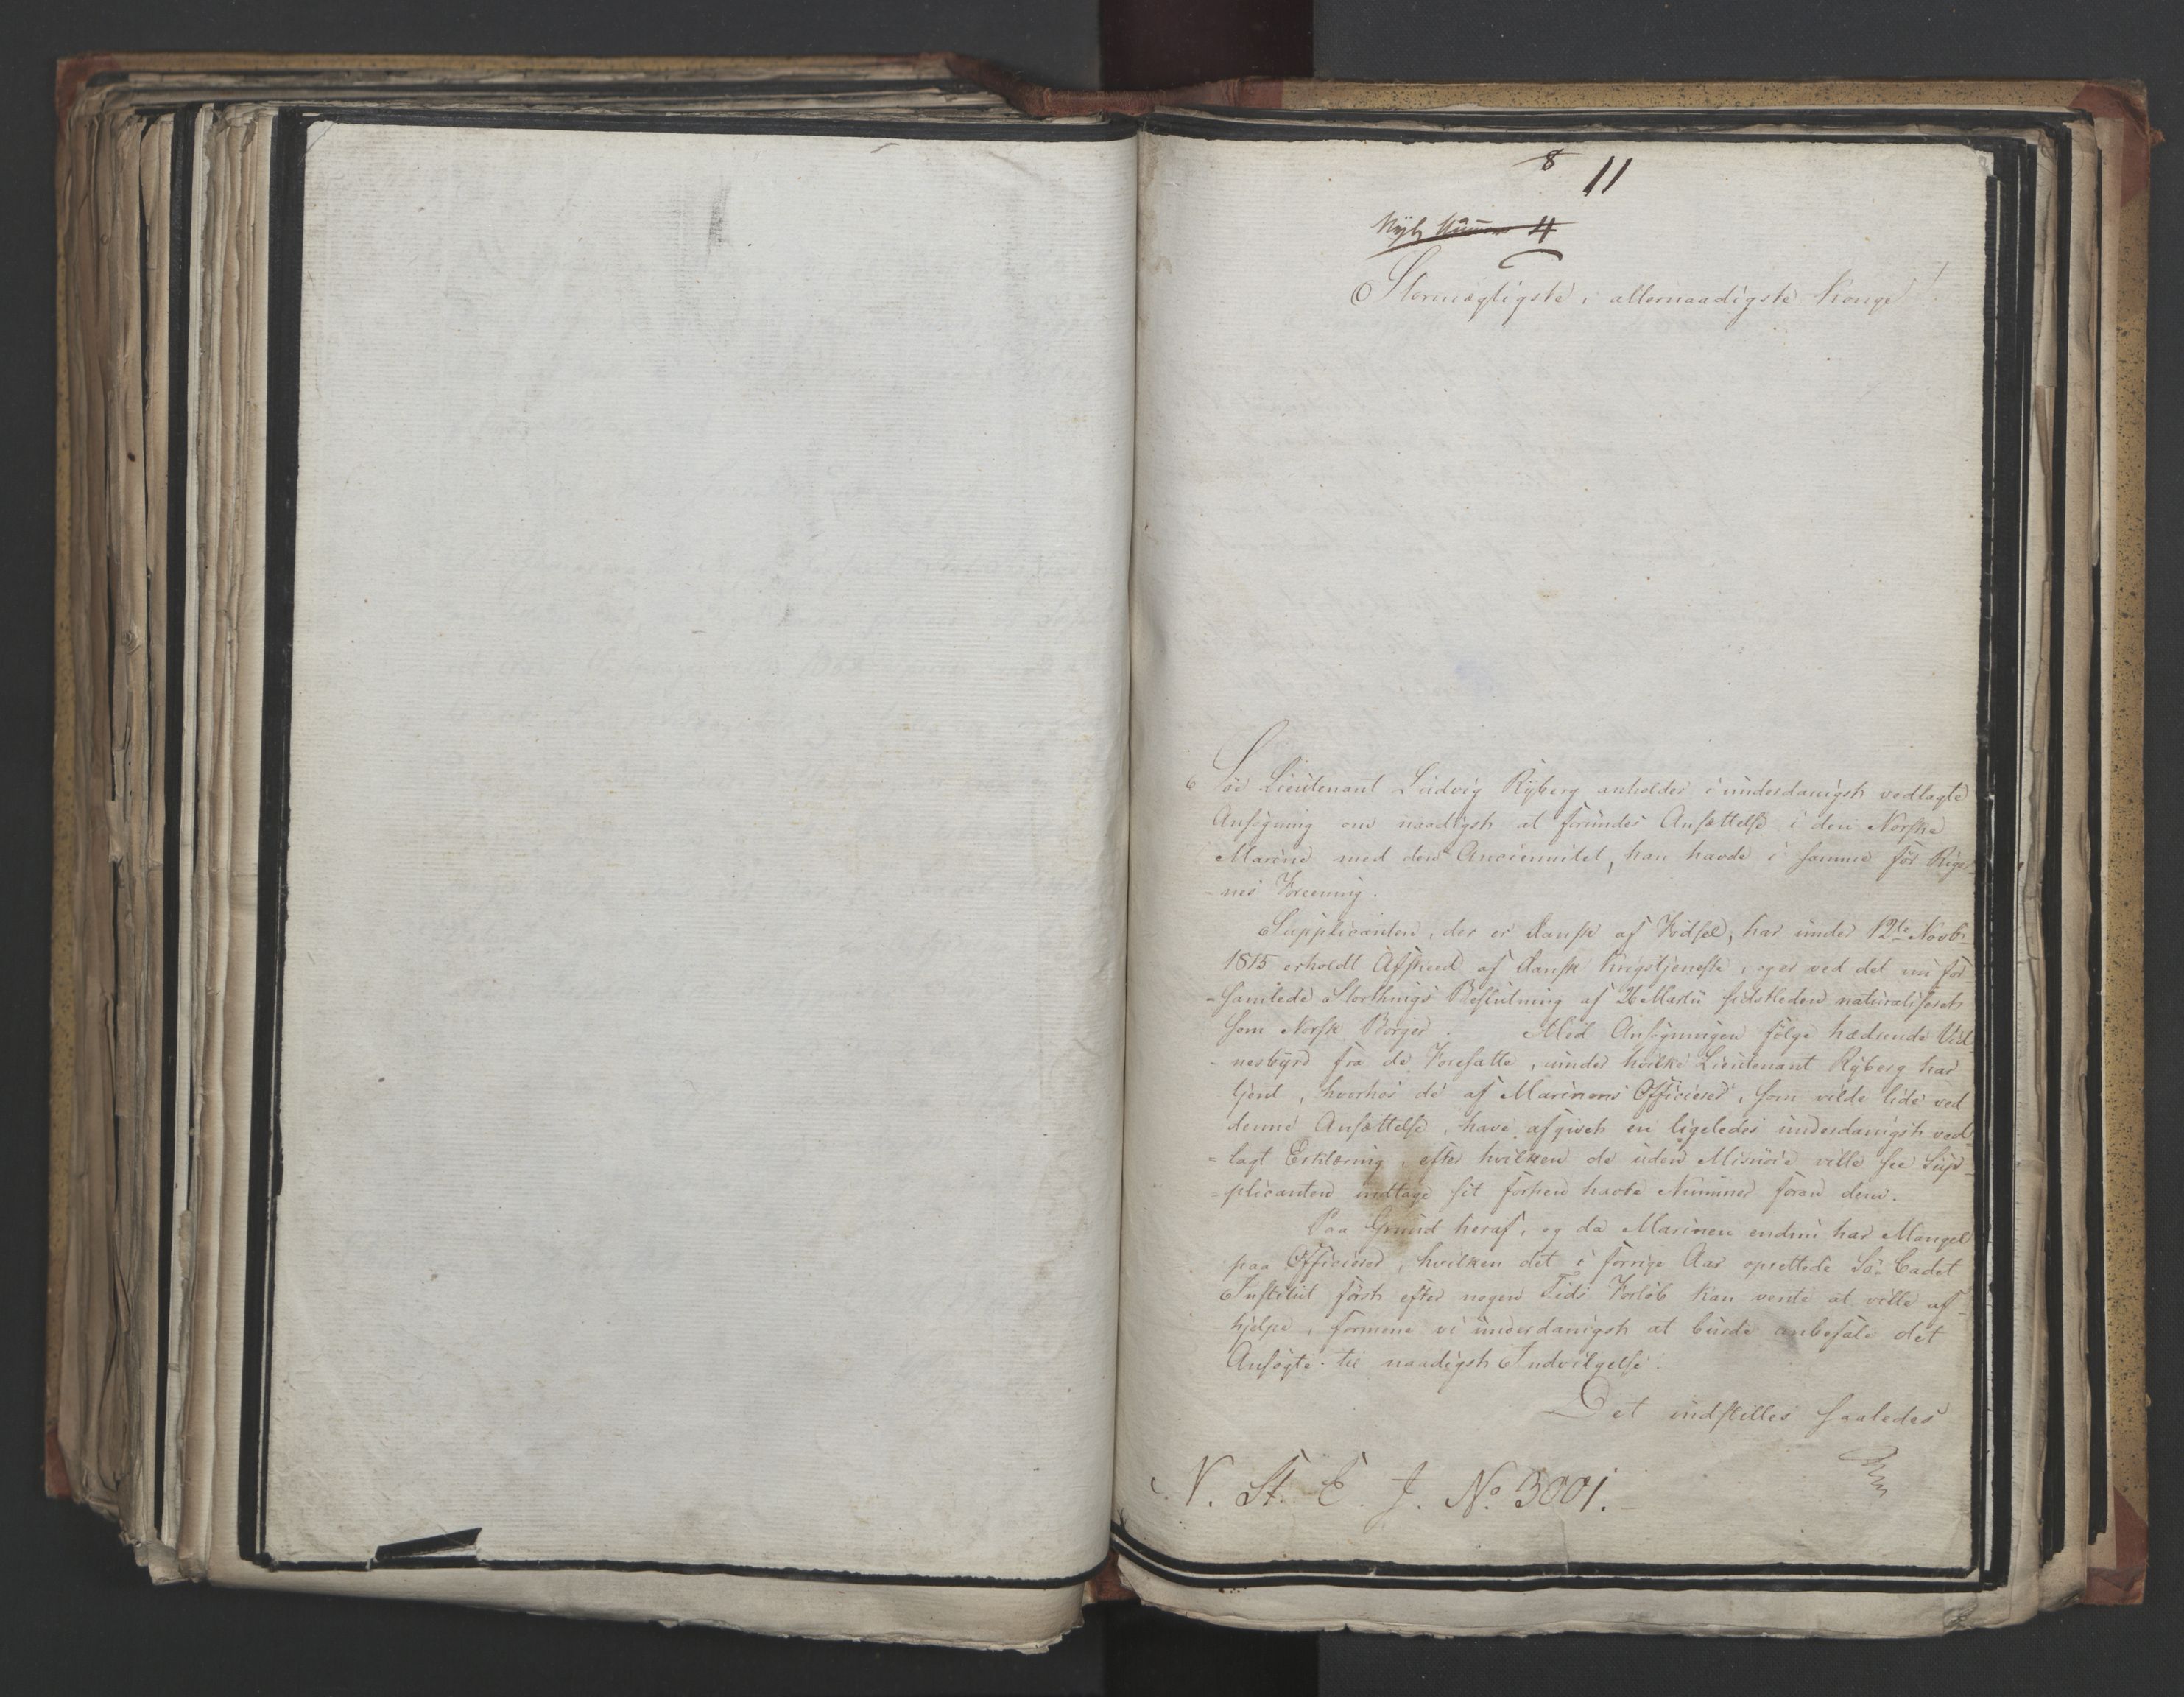 8 11
Nyt Numer 4
Stormægtigste, allernaadigste Konge!
Söe Lieutenant Ludvig Ryberg anholder i underdanigst vedlagte
Ansögning om naadigst at forundes Ansættelse i den Norske
Marine med den Anciennitet, han havde i samme för Riger-
-nes Foreening.
Supplicanten, der er Dansk af Födsel, har under 12te Novbr
1815 erholdt Afskeed af Dansk Krigstjeneste, og er ved det nu for
-samlede Storthings Beslutning af 26 Martii sidstleden naturaliseret
som Norsk Borger. Med Ansögningen fölge hædrende Vid-
-nesbyrd fra de Foresatte, under hvilke Lieutenant Ryberg har
tjent, hvorhos de af Marinens Officierer, som vilde lide ved
denne Ansættelse, have afgivet en ligeledes underdanigst ved-
-lagt Erklæring, efter hvilken de uden Misnöie ville see Sup-
-plicanten indtage sit forhen havte Nummer foran dem.
Paa Grund heraf, og da Marinen endnu har Mangel
paa Officierer, hvilken det i forrige Aar oprettede Sö-Cadet
Institut först efter nogen Tids Forlöb kan vente at ville af-
hjelpe, formene vi underdanigst at burde anbefale det
Ansögte til naadigst Indvilgelse.
Det indstilles saaledes
N. St. E. J. No. 3001.